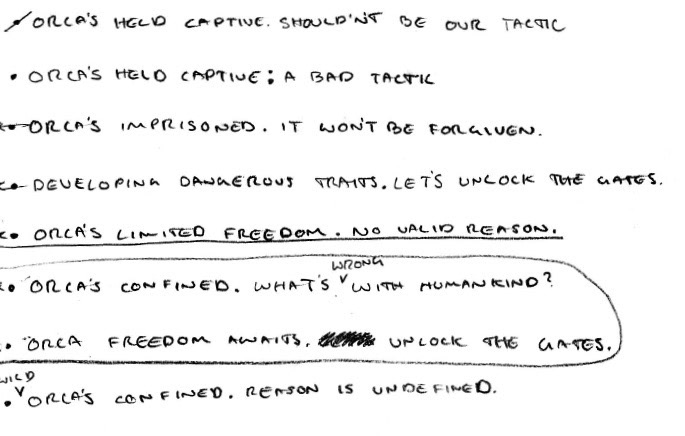 ORCA'S HELD CAPTIVE. SHOULD'NT BE OUR TACTIC
• ORCA'S HELD CAPTIVE: A BAD TACTIC
• ORCA'S IMPRISONED. IT WON'T BE FORGIVEN.
• DEVELOPING DANGEROUS TRAITS. LET'S UNLOCK THE GATES.
• ORCA'S LIMITED FREEDOM. NO VALID REASON.
• ORCA'S CONFINED. WHAT'S WRONG WITH HUMANKIND?
• ORCA FREEDOM AWAITS. UNLOCK THE GATES.
• WILD ORCA'S CONFINED. REASON IS UNDEFINED.